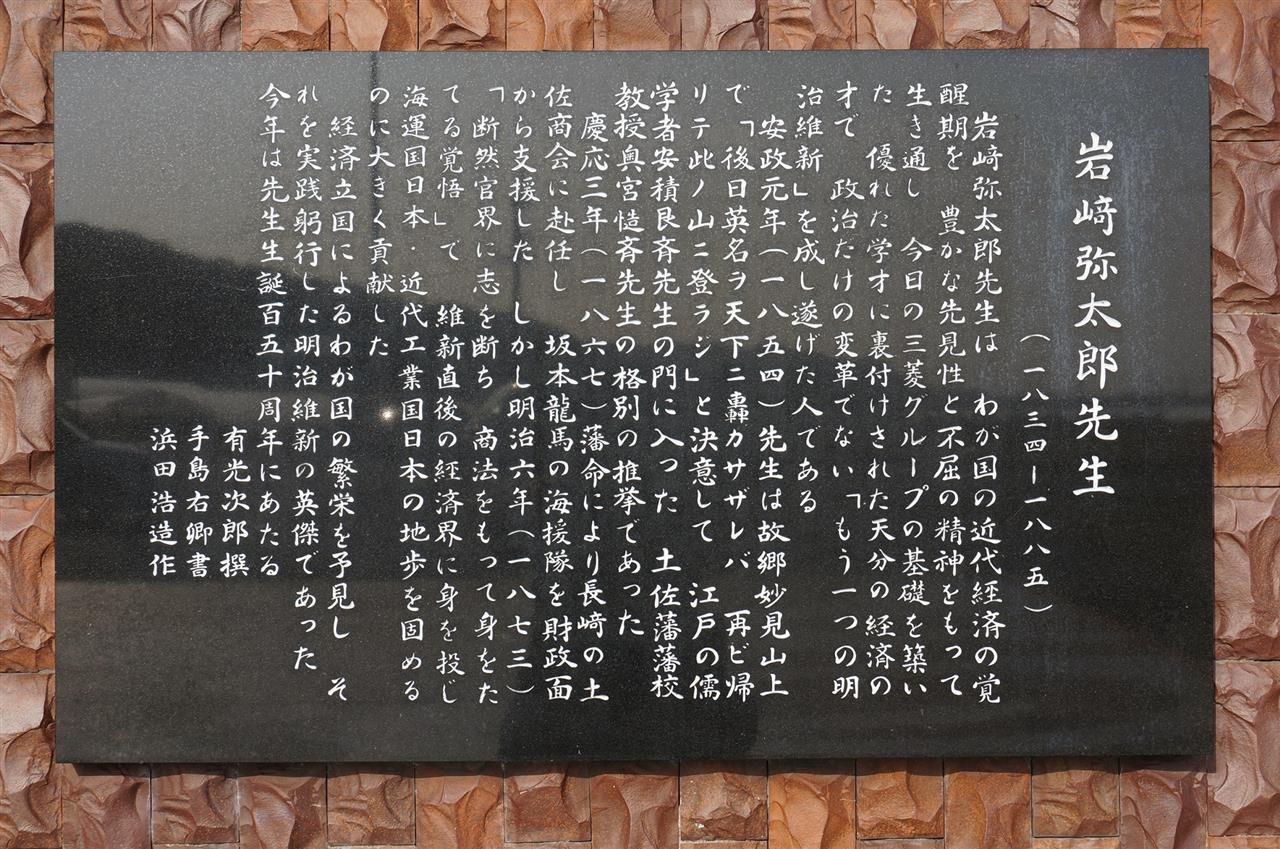 岩﨑弥太郎先生
（一八三四ー一八八五）
岩﨑弥太郎先生は　わが国の近代経済の覚
醒期を　豊かな先見性と不屈の精神をもって
生き通し　今日の三菱グループの基礎を築い
た　優れた学才に裏付けされた天分の経済の
才で　政治だけの変革でない「もう一つの明
治維新」を成し遂げた人である
安政元年（一八五四）先生は故郷妙見山上
で「後日英名ヲ天下ニ轟カサザレバ　再ビ帰
リテ此ノ山ニ登ラジ」と決意して　江戸の儒
学者安積艮斉先生の門に入った　土佐藩藩校
教授奥宮慥斉先生の格別の推挙であった
慶応三年（一八六七）藩命により長﨑の土
佐商会に赴任し　坂本龍馬の海援隊を財政面
から支援した　しかし明治六年（一八七三）
「断然官界に志を断ち　商法をもって身をた
てる覚悟」で　維新直後の経済界に身を投じ
海運国日本・近代工業国日本の地歩を固める
のに大きく貢献した
経済立国によるわが国の繁栄を予見し　そ
れを実践躬行した明治維新の英傑であった
今年は先生生誕百五十周年にあたる
有光次郎撰
手島右卿書
浜田浩造作